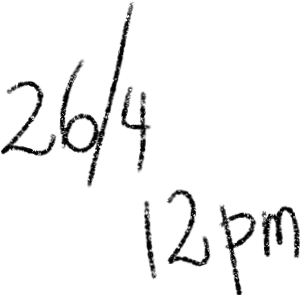 26/4
12pm